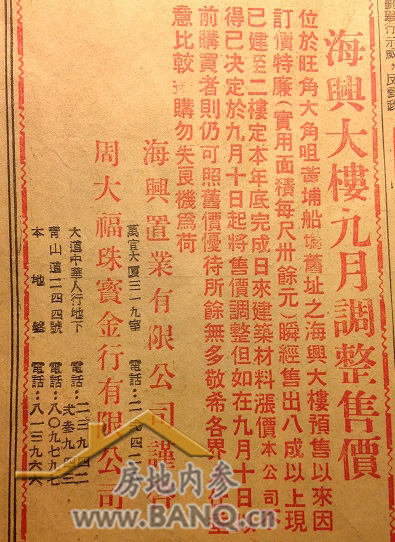 海興大樓九月調整售價
位於旺角大角咀黃埔船塢舊址之海興大樓預售以來因
訂價特廉(實用面積每尺卅餘元)瞬經售出八成以上現
已建至二樓定本年底完成日來建築材料漲價本公司
得已決定於九月十日起將售價調整但如在九月十日以
前購買者則仍可照舊價優待所餘無多敬希各界
意比較 購勿失良機爲荷
海興置業有限公司謹啓
萬宜大厦三一九室 電話:二
周大福珠寶金行有限公司
大道中華人行地下 電話:二三九四二
弍叁九四三
靑山道二四四號 電話:八〇九七九
本地盤 電話:八一三九六
房地内参
www.BANQ.cn